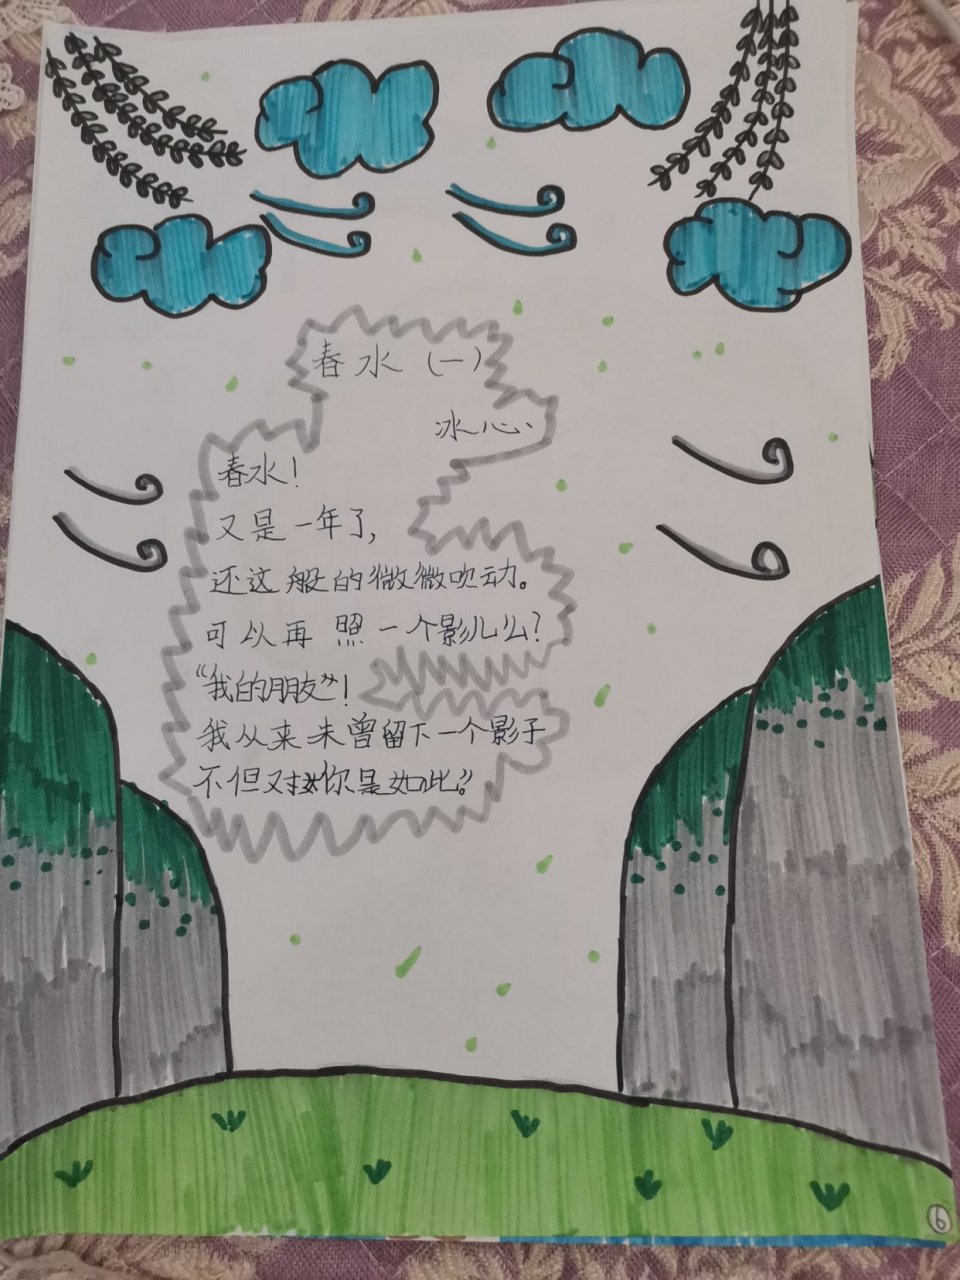 春水（一）
冰心
春水！
又是一年了，
还这般的微微吹动。
可以再照一个影儿么？
“我的朋友”！
我从来未曾留下一个影子
不但对你是如此。”
6